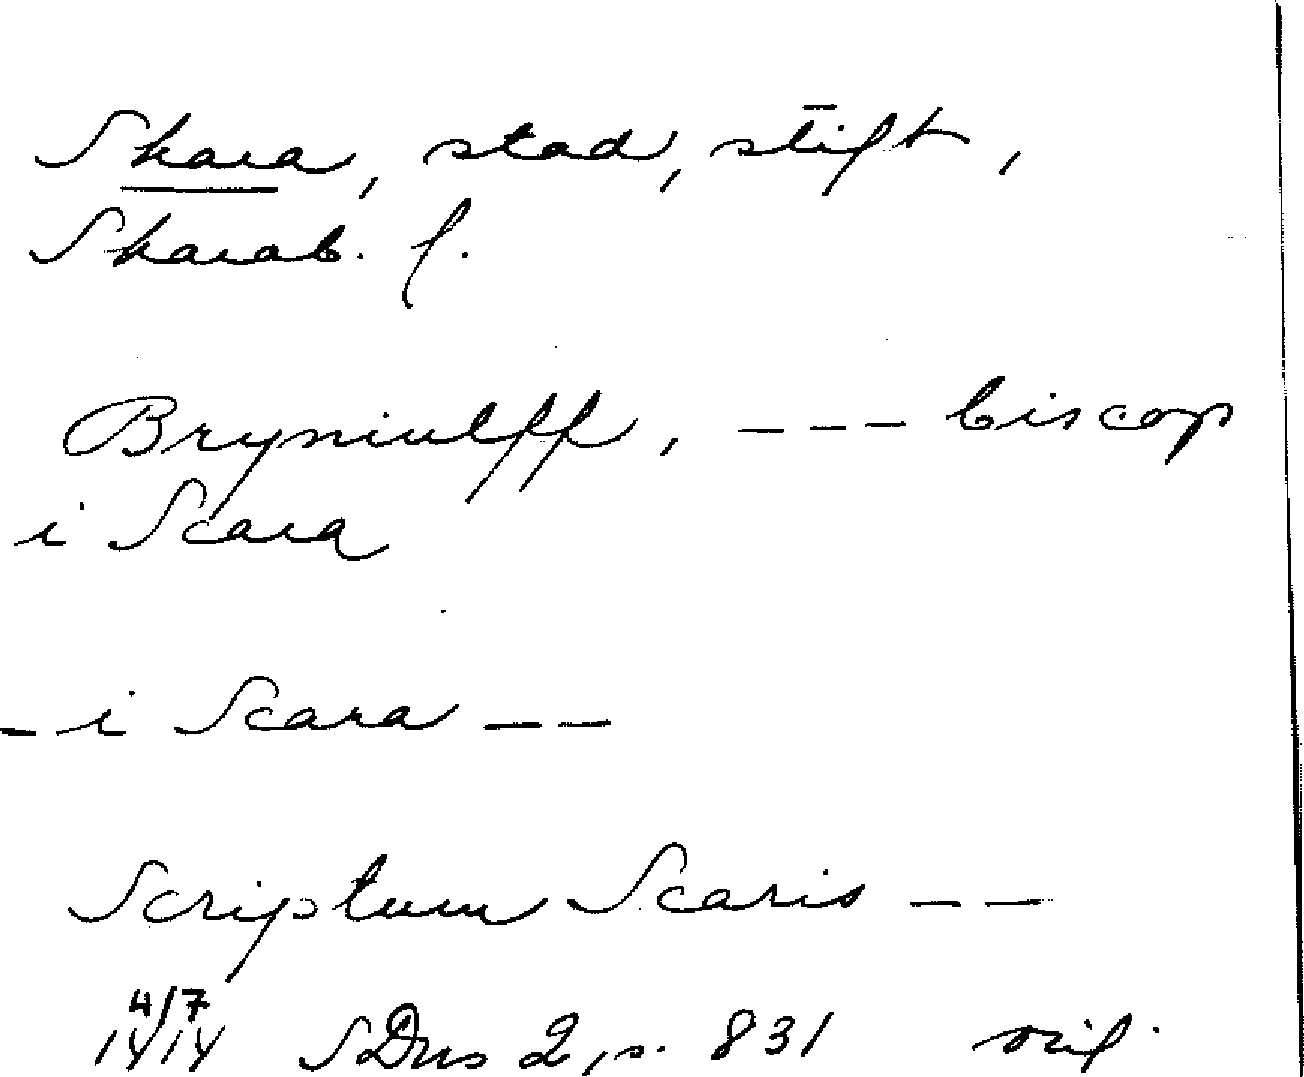 Skara, stad, stift,
Skarab. l.
Bryniulff, --- biscop
i Scara
- i Scara --
Scriptum Scaris --
4/7
1414 SDns 2, s. 831 orig.